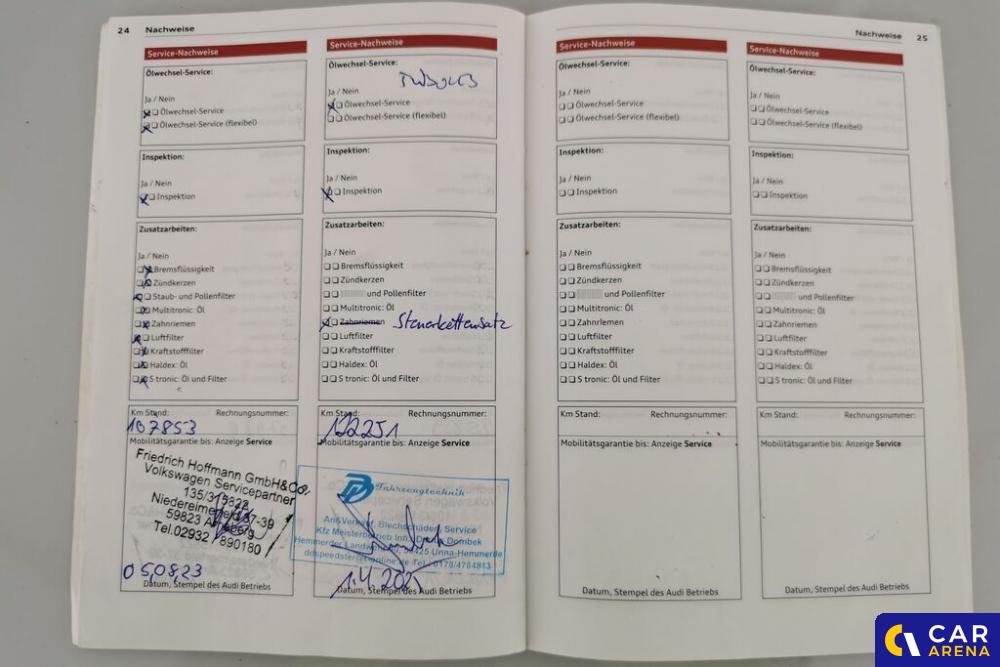 24 Nachweise
Service-Nachweise
Ölwechsel-Service:
Ja / Nein
Ölwechsel-Service
Ölwechsel-Service (flexibel)
Inspektion:
Ja / Nein
Inspektion
Zusatzarbeiten:
Ja / Nein
Bremsflüssigkeit
Zündkerzen
Staub- und Pollenfilter
Multitronic: Öl
Zahnriemen
Luftfilter
Kraftstofffilter
Haldex: Öl
S tronic: Öl und Filter
Km Stand: Rechnungsnummer:
107853
Mobilitätsgarantie bis: Anzeige Service
Friedrich Hoffmann GmbH&Co.
Volkswagen Servicepartner
135/315822
Niedereimerfeld 37-39
59823 Arnsberg
Tel.02932 / 890180
05.08.23
Datum, Stempel des Audi Betriebs
Service-Nachweise
Ölwechsel-Service:
Ja / Nein
Ölwechsel-Service
Ölwechsel-Service (flexibel)
Inspektion:
Ja / Nein
Inspektion
Zusatzarbeiten:
Ja / Nein
Bremsflüssigkeit
Zündkerzen
und Pollenfilter
Multitronic: Öl
Zahnriemen Steuerkettensatz
Luftfilter
Kraftstofffilter
Haldex: Öl
S tronic: Öl und Filter
Km Stand: Rechnungsnummer:
122251
Mobilitätsgarantie bis: Anzeige Service
Fahrzeugtechnik
An&Verkauf, Blechschäden, Service
Kfz Meisterbetrieb Inh. Dombek
Hemmerder 59425 Unna-Hemmerde
ddspeedster@t-online.de Tel.: 0178/4784813
1.4.2025
Datum, Stempel des Audi Betriebs
Nachweise 25
Service-Nachweise
Ölwechsel-Service:
Ja / Nein
Ölwechsel-Service
Ölwechsel-Service (flexibel)
Inspektion:
Ja / Nein
Inspektion
Zusatzarbeiten:
Ja / Nein
Bremsflüssigkeit
Zündkerzen
und Pollenfilter
Multitronic: Öl
Zahnriemen
Luftfilter
Kraftstofffilter
Haldex: Öl
S tronic: Öl und Filter
Km Stand: Rechnungsnummer:
Mobilitätsgarantie bis: Anzeige Service
Datum, Stempel des Audi Betriebs
Service-Nachweise
Ölwechsel-Service:
Ja / Nein
Ölwechsel-Service
Ölwechsel-Service (flexibel)
Inspektion:
Ja / Nein
Inspektion
Zusatzarbeiten:
Ja / Nein
Bremsflüssigkeit
Zündkerzen
und Pollenfilter
Multitronic: Öl
Zahnriemen
Luftfilter
Kraftstofffilter
Haldex: Öl
S tronic: Öl und Filter
Km Stand: Rechnungsnummer:
Mobilitätsgarantie bis: Anzeige Service
Datum, Stempel des Audi Betriebs
CAR
ARENA